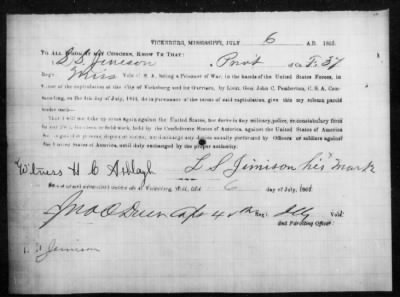 VICKSBURG, MISSISSIPPI, JULY 6 A.D. 1863.
TO ALL WHOM IT MAY CONCERN, KNOW YE THAT:
I L. S. Jimison Priv't of Co. F. 37
Reg't Miss Vols. C. S. A., being a Prisoner of War, in the hands of the United States Forces, in
virtue of the capitulation of the City of Vicksburg and its Garrison, by Lieut. Gen. John C. Pemberton, C. S. A., Com-
manding, on the 4th day of July, 1863, do in pursuance of the terms of said capitulation, give this my solemn parole
under oath—
That I will not take up arms again against the United States, nor serve in any military, police, or constabulary force
in any Fort, Garrison or field work, held by the Confederate States of America, against the United States of America,
nor as guard of prisons, depots or stores; nor discharge any duties usually performed by Officers or soldiers against
the United States of America, until duly exchanged by the proper authorities.
Witness H C L S Jimison his mark
Sworn to and subscribed before me at Vicksburg, Miss., this 6 day of July, 1863.
Jno O Capt 4 Reg't Ills Vols:
And Paroling Officer.
L S Jimison